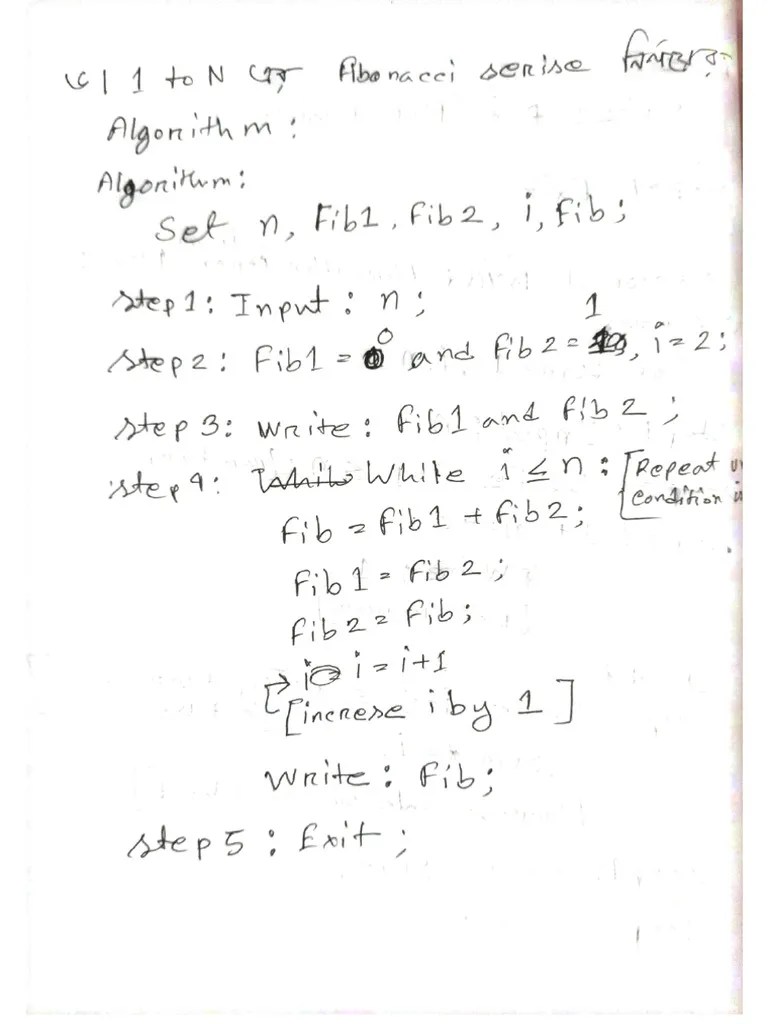 ৩। 1 to N এর Fibonacci serise নির্ণয়ের
Algorithm :
Algorithm :
Set n, Fib1, Fib2, i, Fib ;
step 1 : Input : n ;
step 2 : Fib1 = 0 and Fib2 = 1, i = 2 ;
step 3 : Write : fib1 and fib2 ;
step 4 : While i ≤ n : [Repeat
condition
fib = fib1 + fib2 ;
Fib1 = Fib2 ;
fib2 = Fib ;
i = i+1
[increse i by 1]
Write : Fib ;
step 5 : Exit ;